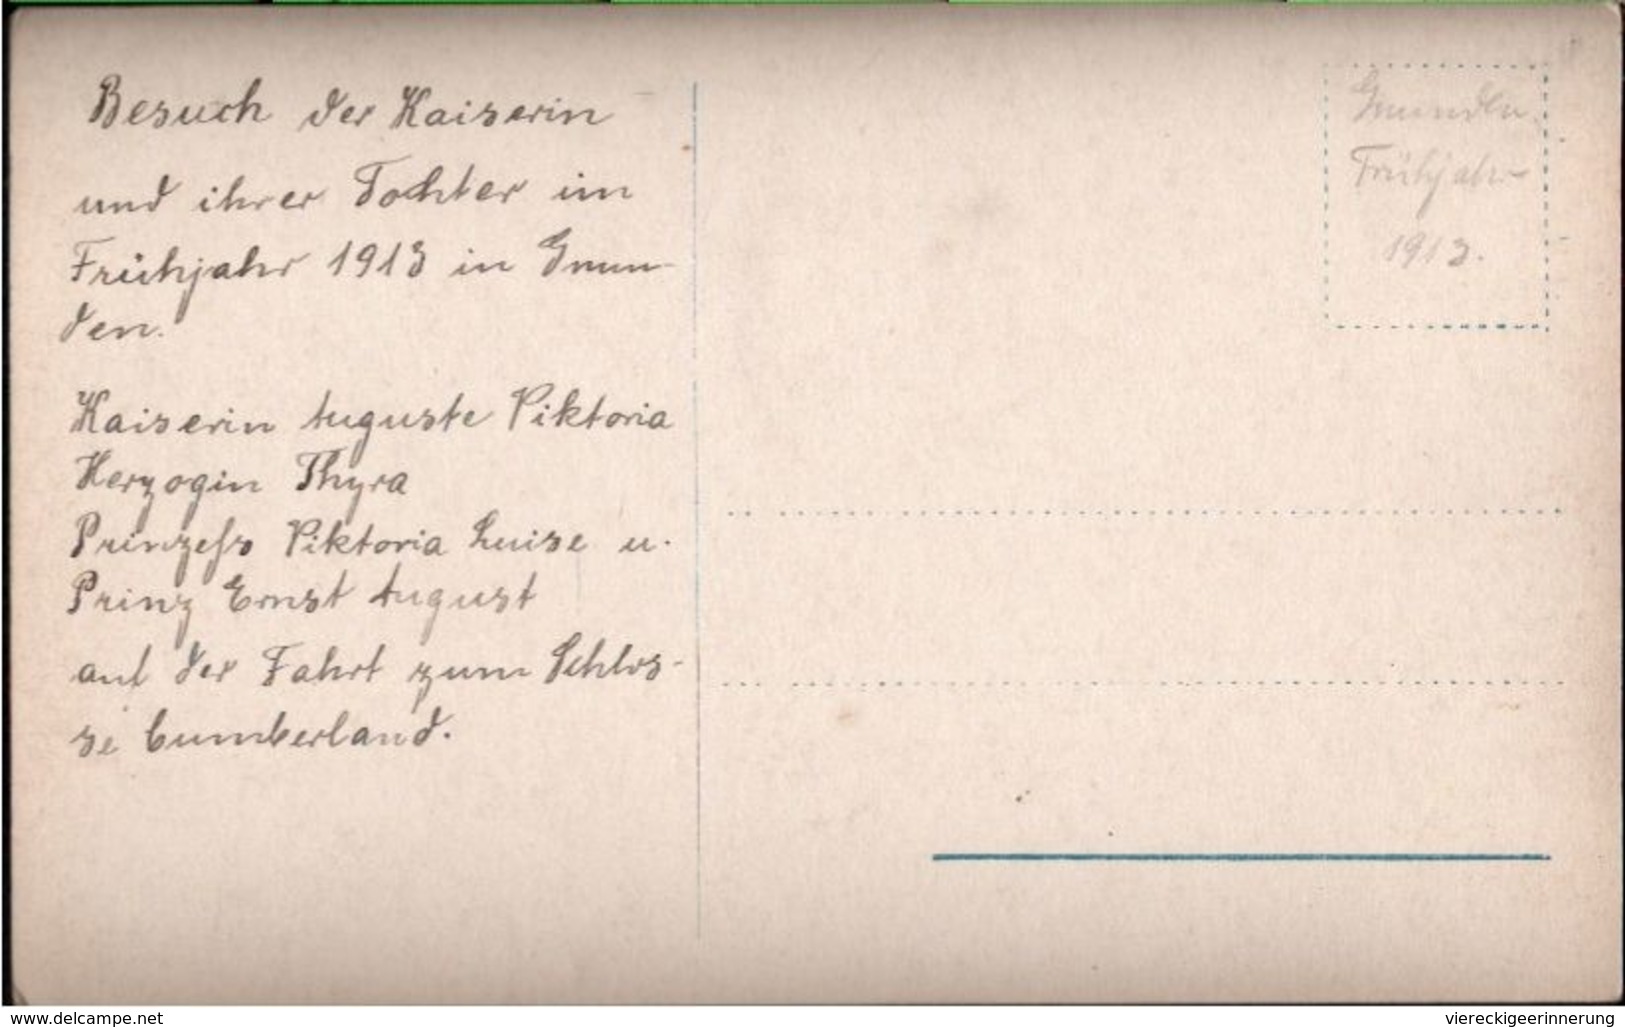 Besuch der Kaiserin
und ihrer Tochter im
Frühjahr 1913 in Gmun-
den.
Kaiserin Auguste Viktoria
Herzogin Thyra
Prinzeſs Viktoria Luise u.
Prinz Ernst August
auf der Fahrt zum Schlos-
se Cumberland.
Gmunden
Frühjahr
1913.
www.delcampe.net
viereckigeerinnerung